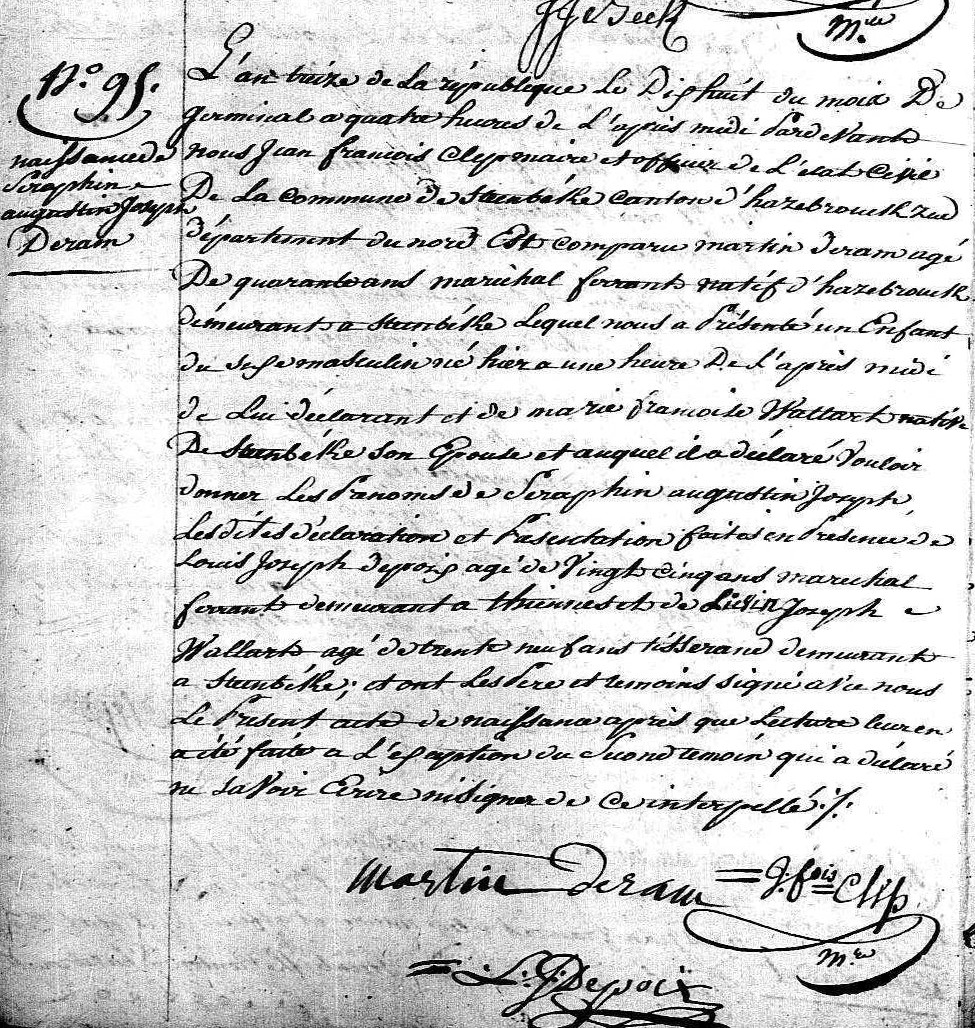 JJ Beck
M.re
N.o 95.
naissance de
Seraphin
augustin Joseph
Deram
L'an treize de la république Le Dishuit du moix De
Germinal a quatre heures de L'après midi Pardevant
nous Jean françois Clep maire et officier de L'etat Civil
De La commune de Steenbéke canton d'hazebrouck zud
département du nord Est comparu martin deram agé
De quarante ans maréchal ferrant natif d'hazebrouck
démeurant a Steenbéke Lequel nous a Présenté un Enfant
du Sexe masculin né hier a une heure De L'après midi
de Lui déclarant et de marie françoise Wallart native
De Steenbéke Son Epouse et auquel il a déclaré Vouloir
donner Les Prenoms de Seraphin augustin Joseph,
Lesdites déclaration et Présentation faites en Présence de
Louis Joseph depoix agé de Vingt cinq ans marechal
ferrant demeurant a thiennes et de Livin Joseph
Wallart agé de trente neuf ans tisserand demeurant
a Steenbéke; et ont Les Pere et temoins signé avec nous
Le Present acte de naissance après que Lecture leur en
a été faite a L'exception du Second temoin qui a déclaré
ne Savoir Ecrire ni Signer de ce interpellé ./.
martin Deram = J: fois Clep
M.re
= L: J: Depoix